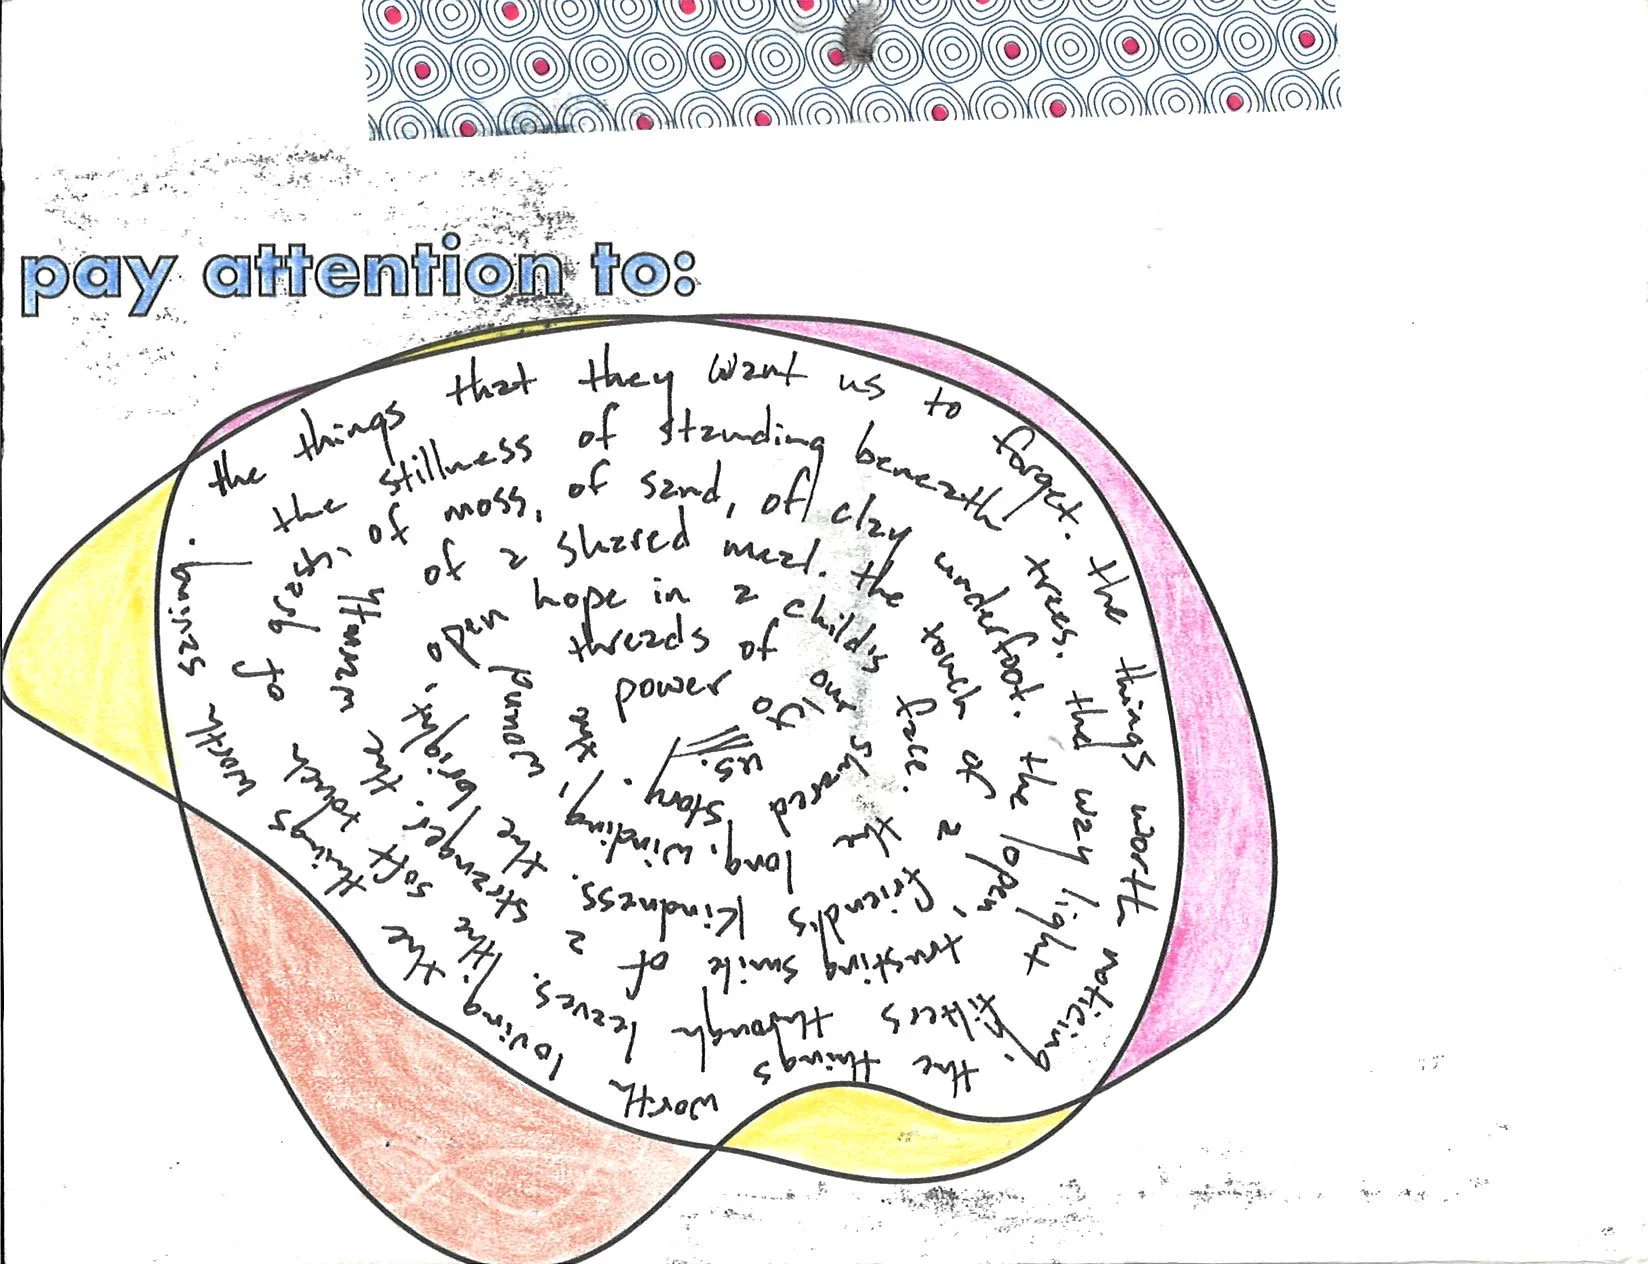 pay attention to:
the things that they want us to forget. the things worth noticing, the things worth loving the things worth saving. the stillness of standing beneath trees. the way light filters through leaves. the little soft touch of grass, of moss, of sand, of clay underfoot. the open, trusting smile of a stranger. the warmth of a shared meal. the touch of a friend's kindness. the bright, open hope in a child's face. the long, winding, wound threads of our shared story. the power of us.